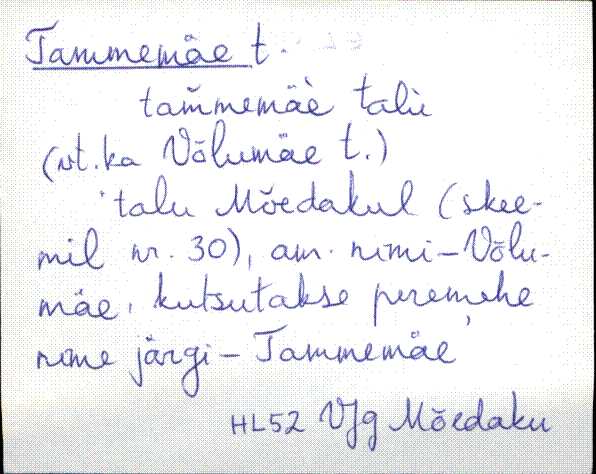 Tammemäe t.
tam̆memäè talù
(vt. ka Võlumäe t.)
talu Mõedakul (skee-
mil nr. 30), am. nimi – Võlu-
mäe, kutsutakse peremehe
nime järgi – Tammemäe
HL52 VJg Mõedaku